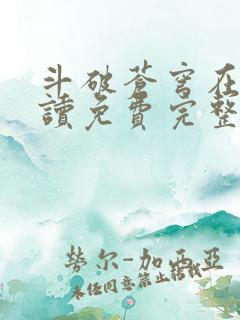 斗破蒼穹在
讀免費完整
勞尔-加西亞
未经同意禁止转载